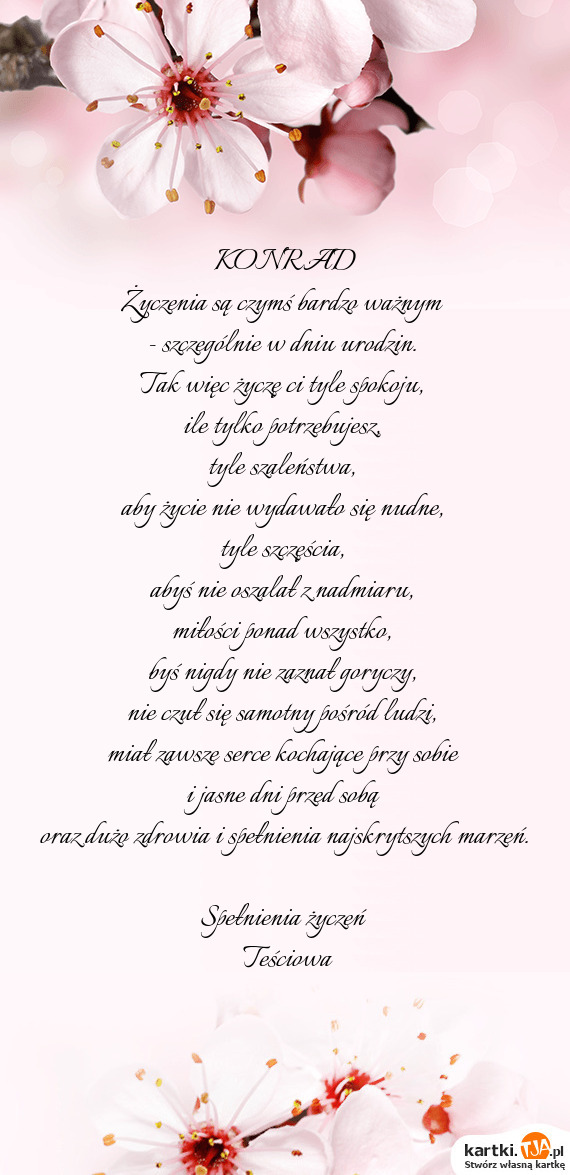 KONRAD
Życzenia są czymś bardzo ważnym
- szczególnie w dniu urodzin.
Tak więc życzę ci tyle spokoju,
ile tylko potrzebujesz,
tyle szaleństwa,
aby życie nie wydawało się nudne,
tyle szczęścia,
abyś nie oszalał z nadmiaru,
miłości ponad wszystko,
byś nigdy nie zaznał goryczy,
nie czuł się samotny pośród ludzi,
miał zawsze serce kochające przy sobie
i jasne dni przed sobą
oraz dużo zdrowia i spełnienia najskrytszych marzeń.
Spełnienia życzeń
Teściowa
kartki.TJA.pl
Stwórz własną kartkę